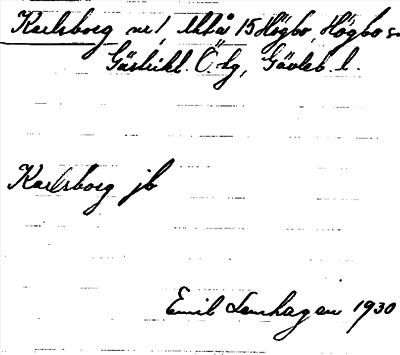 Karlsborg nr 1 Åktå 15 Högbo, Högbo s.
Gästrikl. Ö. tg, Gävleb. l.
Karlsborg jb
Emil Lenhagen 1930